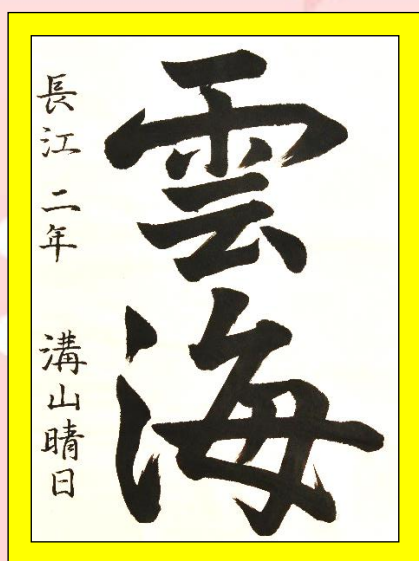 雲海
長江 二年 溝山晴日